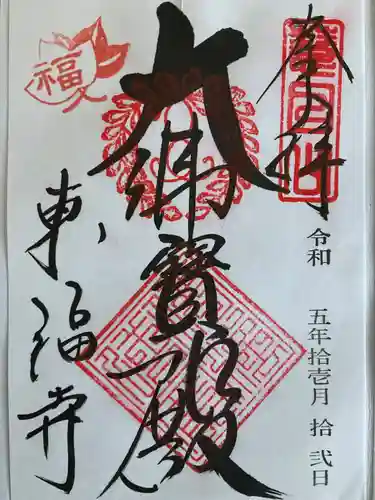 奉拝
令和 五年拾壱月 拾弐日
大佛寳殿
東福寺
福